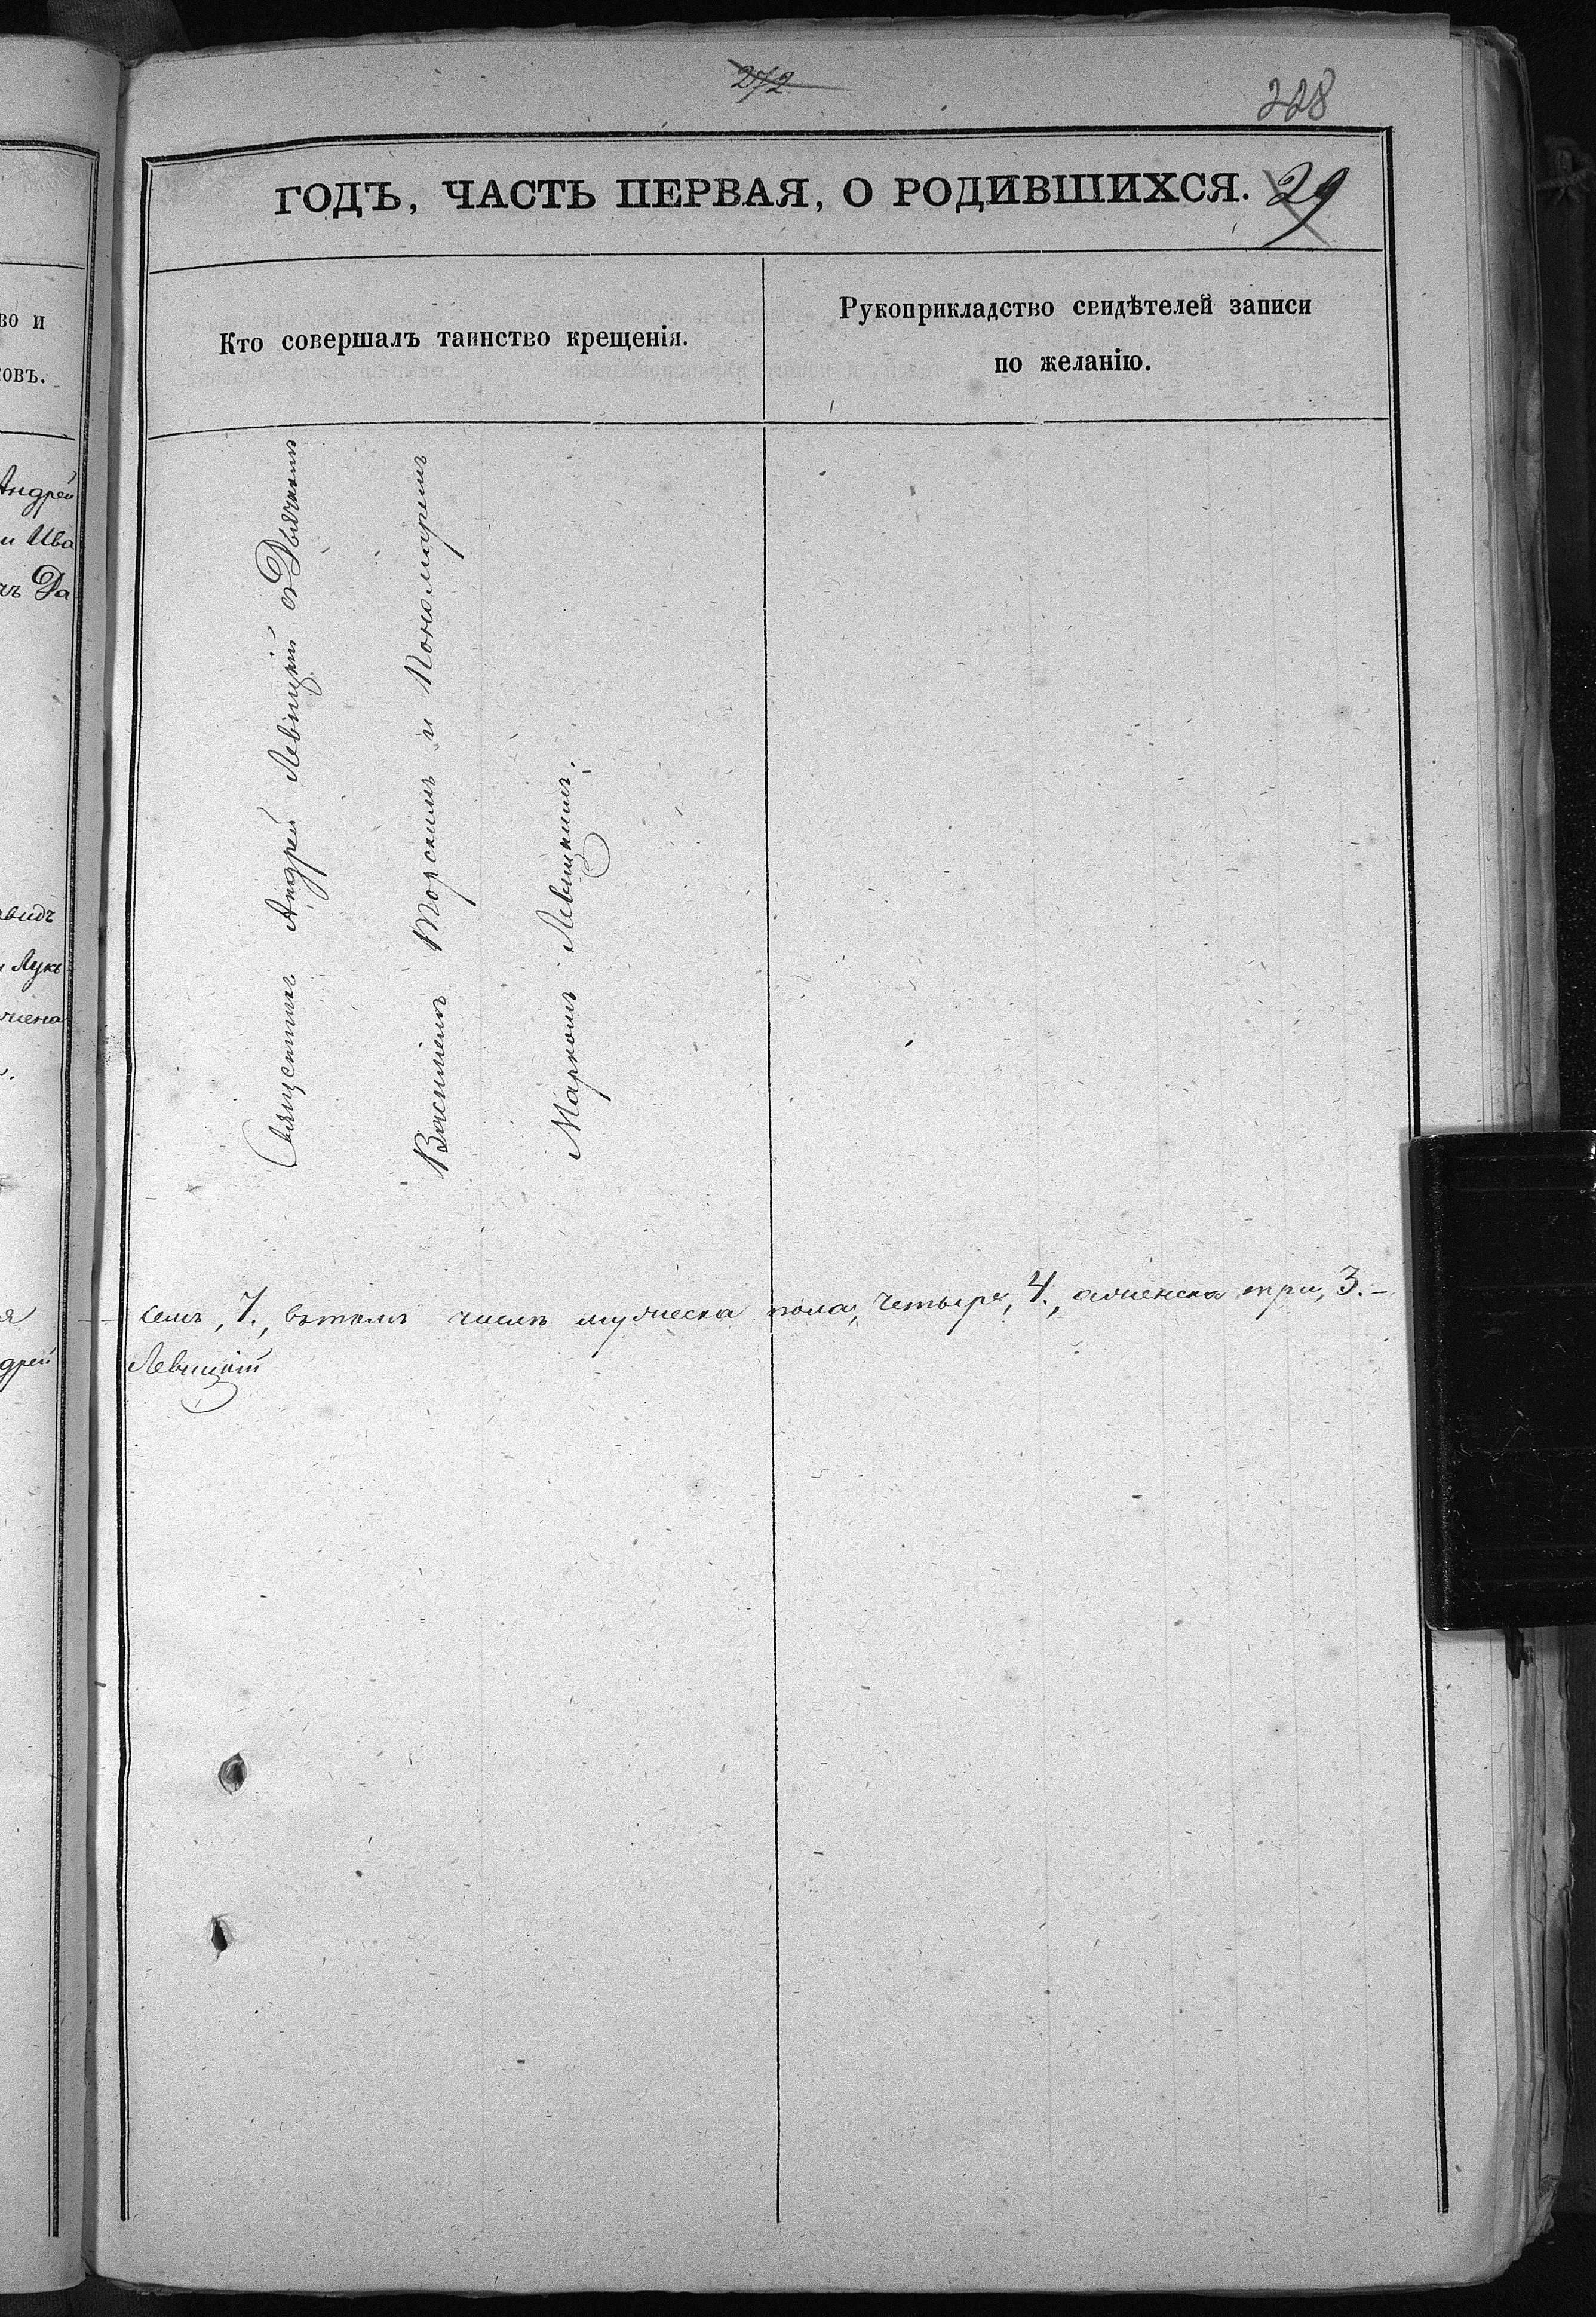 272
228
ГОДЪ, ЧАСТЬ ПЕРВАЯ, О РОДИВШИХСЯ. 29
Кто совершалъ таинство крещенія.
Рукоприкладство свидѣтелей записи
по желанію.
Священникъ Андрей Левицкій съ Дьячкомъ
Василіемъ Торскимъ и Пономаремъ
Маркомъ Левицкимъ.
семь, 7., вътомъ числѣ мужеска пола, четыре, 4., аженска три, 3. -
Левицкій
во и
овъ.
Андрей
и Ива
Да
авидъ
Лукь
дрей